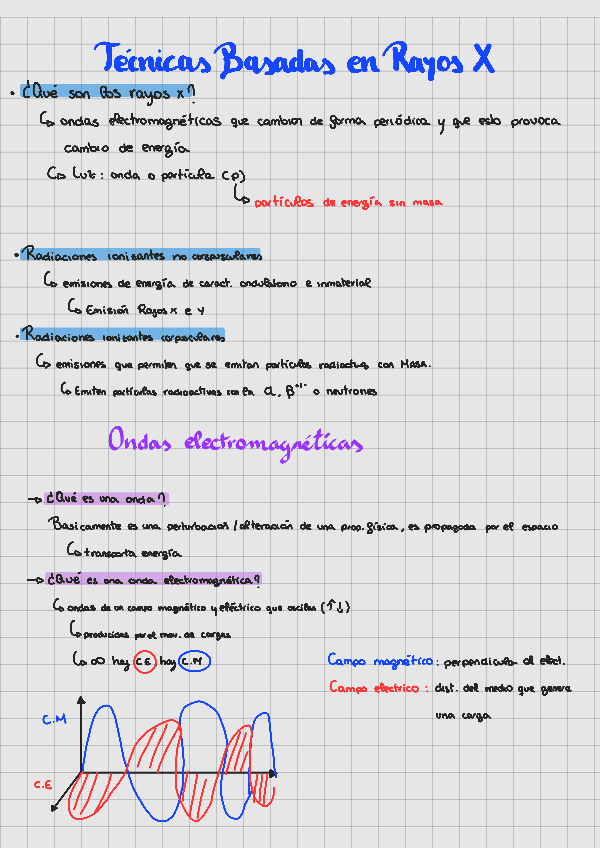 Técnicas Basadas en Rayos X
• ¿Qué son los rayos x?
↳ ondas electromagnéticas que cambian de forma periódica y que esto provoca
cambio de energía
↳ Luz: onda o partícula (p)
↳ partículas de energía sin masa
• Radiaciones ionizantes no corpusculares
↳ emisiones de energía de caract. ondulatorio e inmaterial
↳ Emisión Rayos x e γ
• Radiaciones ionizantes corpusculares
↳ emisiones que permiten que se emitan partículas radiactivas con Masa.
↳ Emiten partículas radioactivas con la α, β⁺/⁻ o neutrones
Ondas electromagnéticas
→ ¿Qué es una onda?
Basicamente es una perturbación/alteración de una prop. física, es propagada por el espacio
↳ transporta energía
→ ¿Qué es una onda electromagnética?
↳ ondas de un campo magnético y eléctrico que oscilan (↑↓)
↳ producidas por el mov. de cargas
↳ ∞ hay C.E hay C.M
Campo magnético: perpendicular al elect.
Campo electrico: dist. del medio que genera
una carga
C.M
C.E